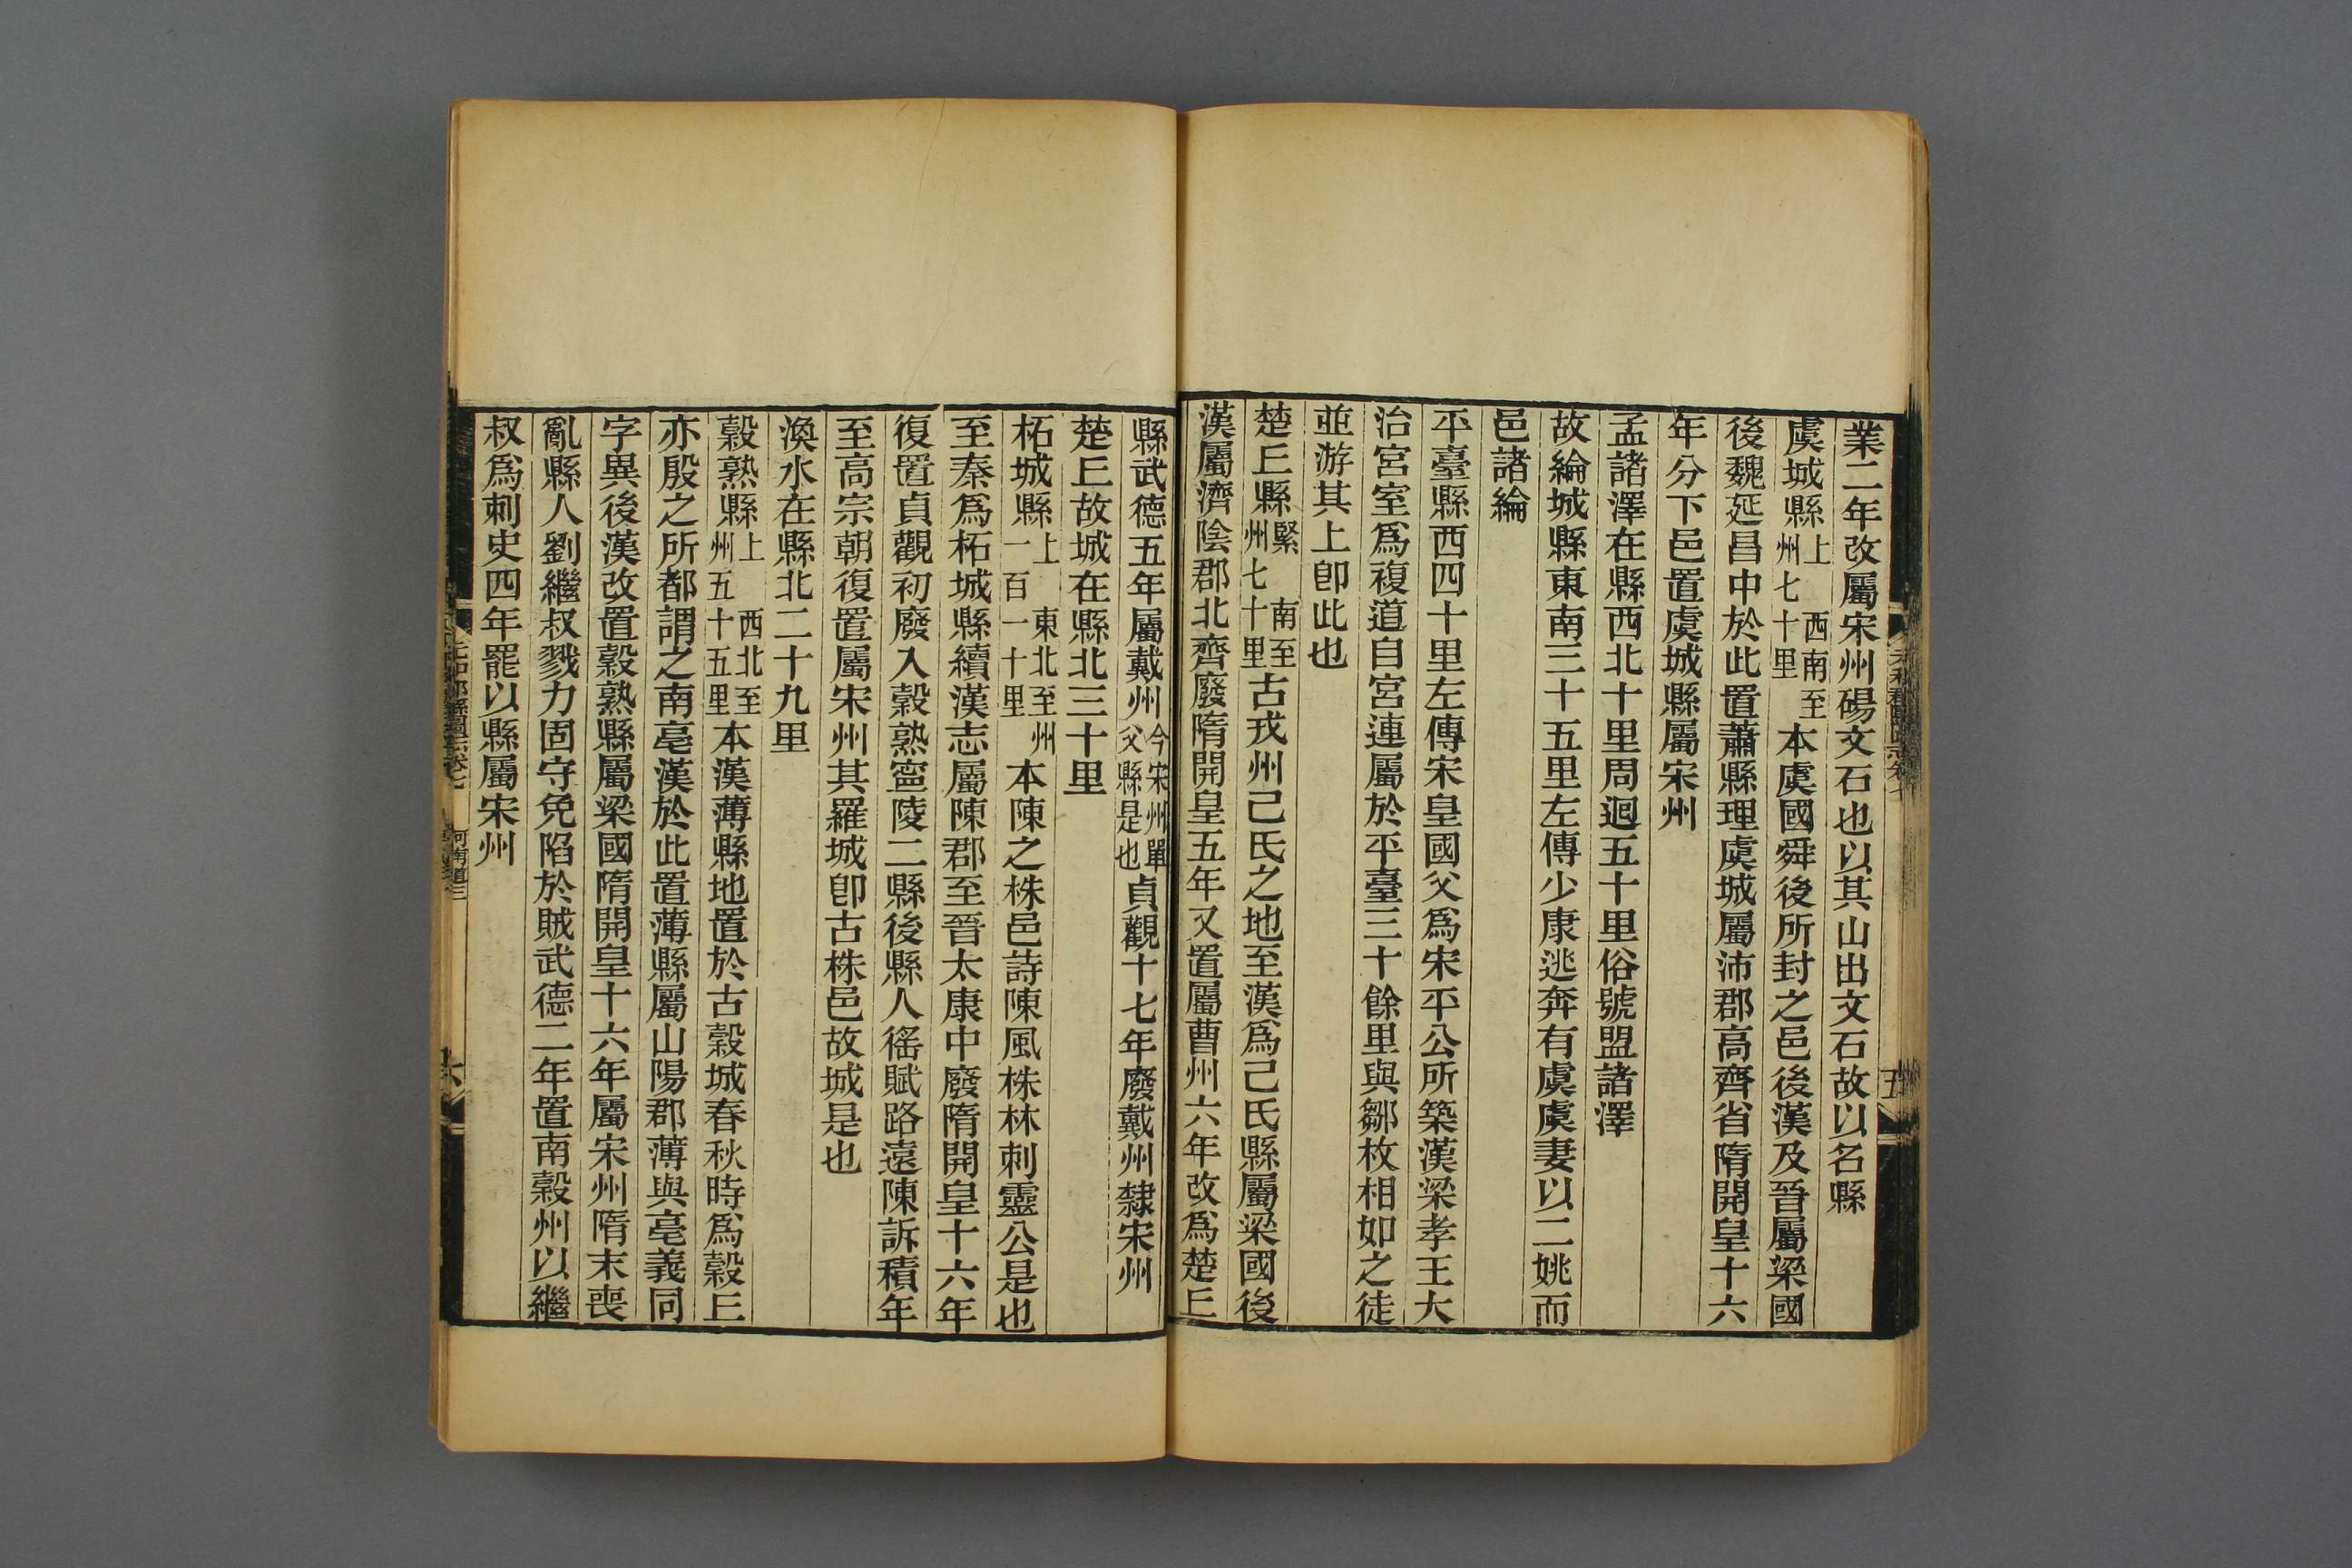 業二年改屬宋州碭文石也以其山出文石故以名縣
虞城縣上西南至州七十里本虞國舜後所封之邑後漢及晉屬梁國
後魏延昌中於此置蕭縣理虞城屬沛郡高齊省隋開皇十六
年分下邑置虞城縣屬宋州
孟諸澤在縣西北十里周迴五十里俗號盟諸澤
故綸城縣東南三十五里左傳少康逃奔有虞虞妻以二姚而
邑諸綸
平臺縣西四十里左傳宋皇國父爲宋平公所築漢梁孝王大
治宮室爲複道自宮連屬於平臺三十餘里與鄒枚相如之徒
並游其上卽此也
楚丘縣緊南至州七十里古戎州己氏之地至漢爲己氏縣屬梁國後
漢屬濟陰郡北齊廢隋開皇五年又置屬曹州六年改爲楚丘
縣武德五年屬戴州今宋州單父縣是也貞觀十七年廢戴州隸宋州
楚丘故城在縣北三十里
柘城縣上東北至州一百一十里本陳之株邑詩陳風株林刺靈公是也
至秦爲柘城縣續漢志屬陳郡至晉太康中廢隋開皇十六年
復置貞觀初廢入穀熟寍陵二縣後縣人徭賦路遠陳訴積年
至高宗朝復置屬宋州其羅城卽古株邑故城是也
渙水在縣北二十九里
穀熟縣上西北至州五十五里本漢薄縣地置於古穀城春秋時爲穀丘
亦殷之所都謂之南亳漢於此置薄縣屬山陽郡薄與亳義同
字異後漢改置穀熟縣屬梁國隋開皇十六年屬宋州隋末喪
亂縣人劉繼叔戮力固守免陷於賊武德二年置南穀州以繼
叔爲刺史四年罷以縣屬宋州
河南道三
六